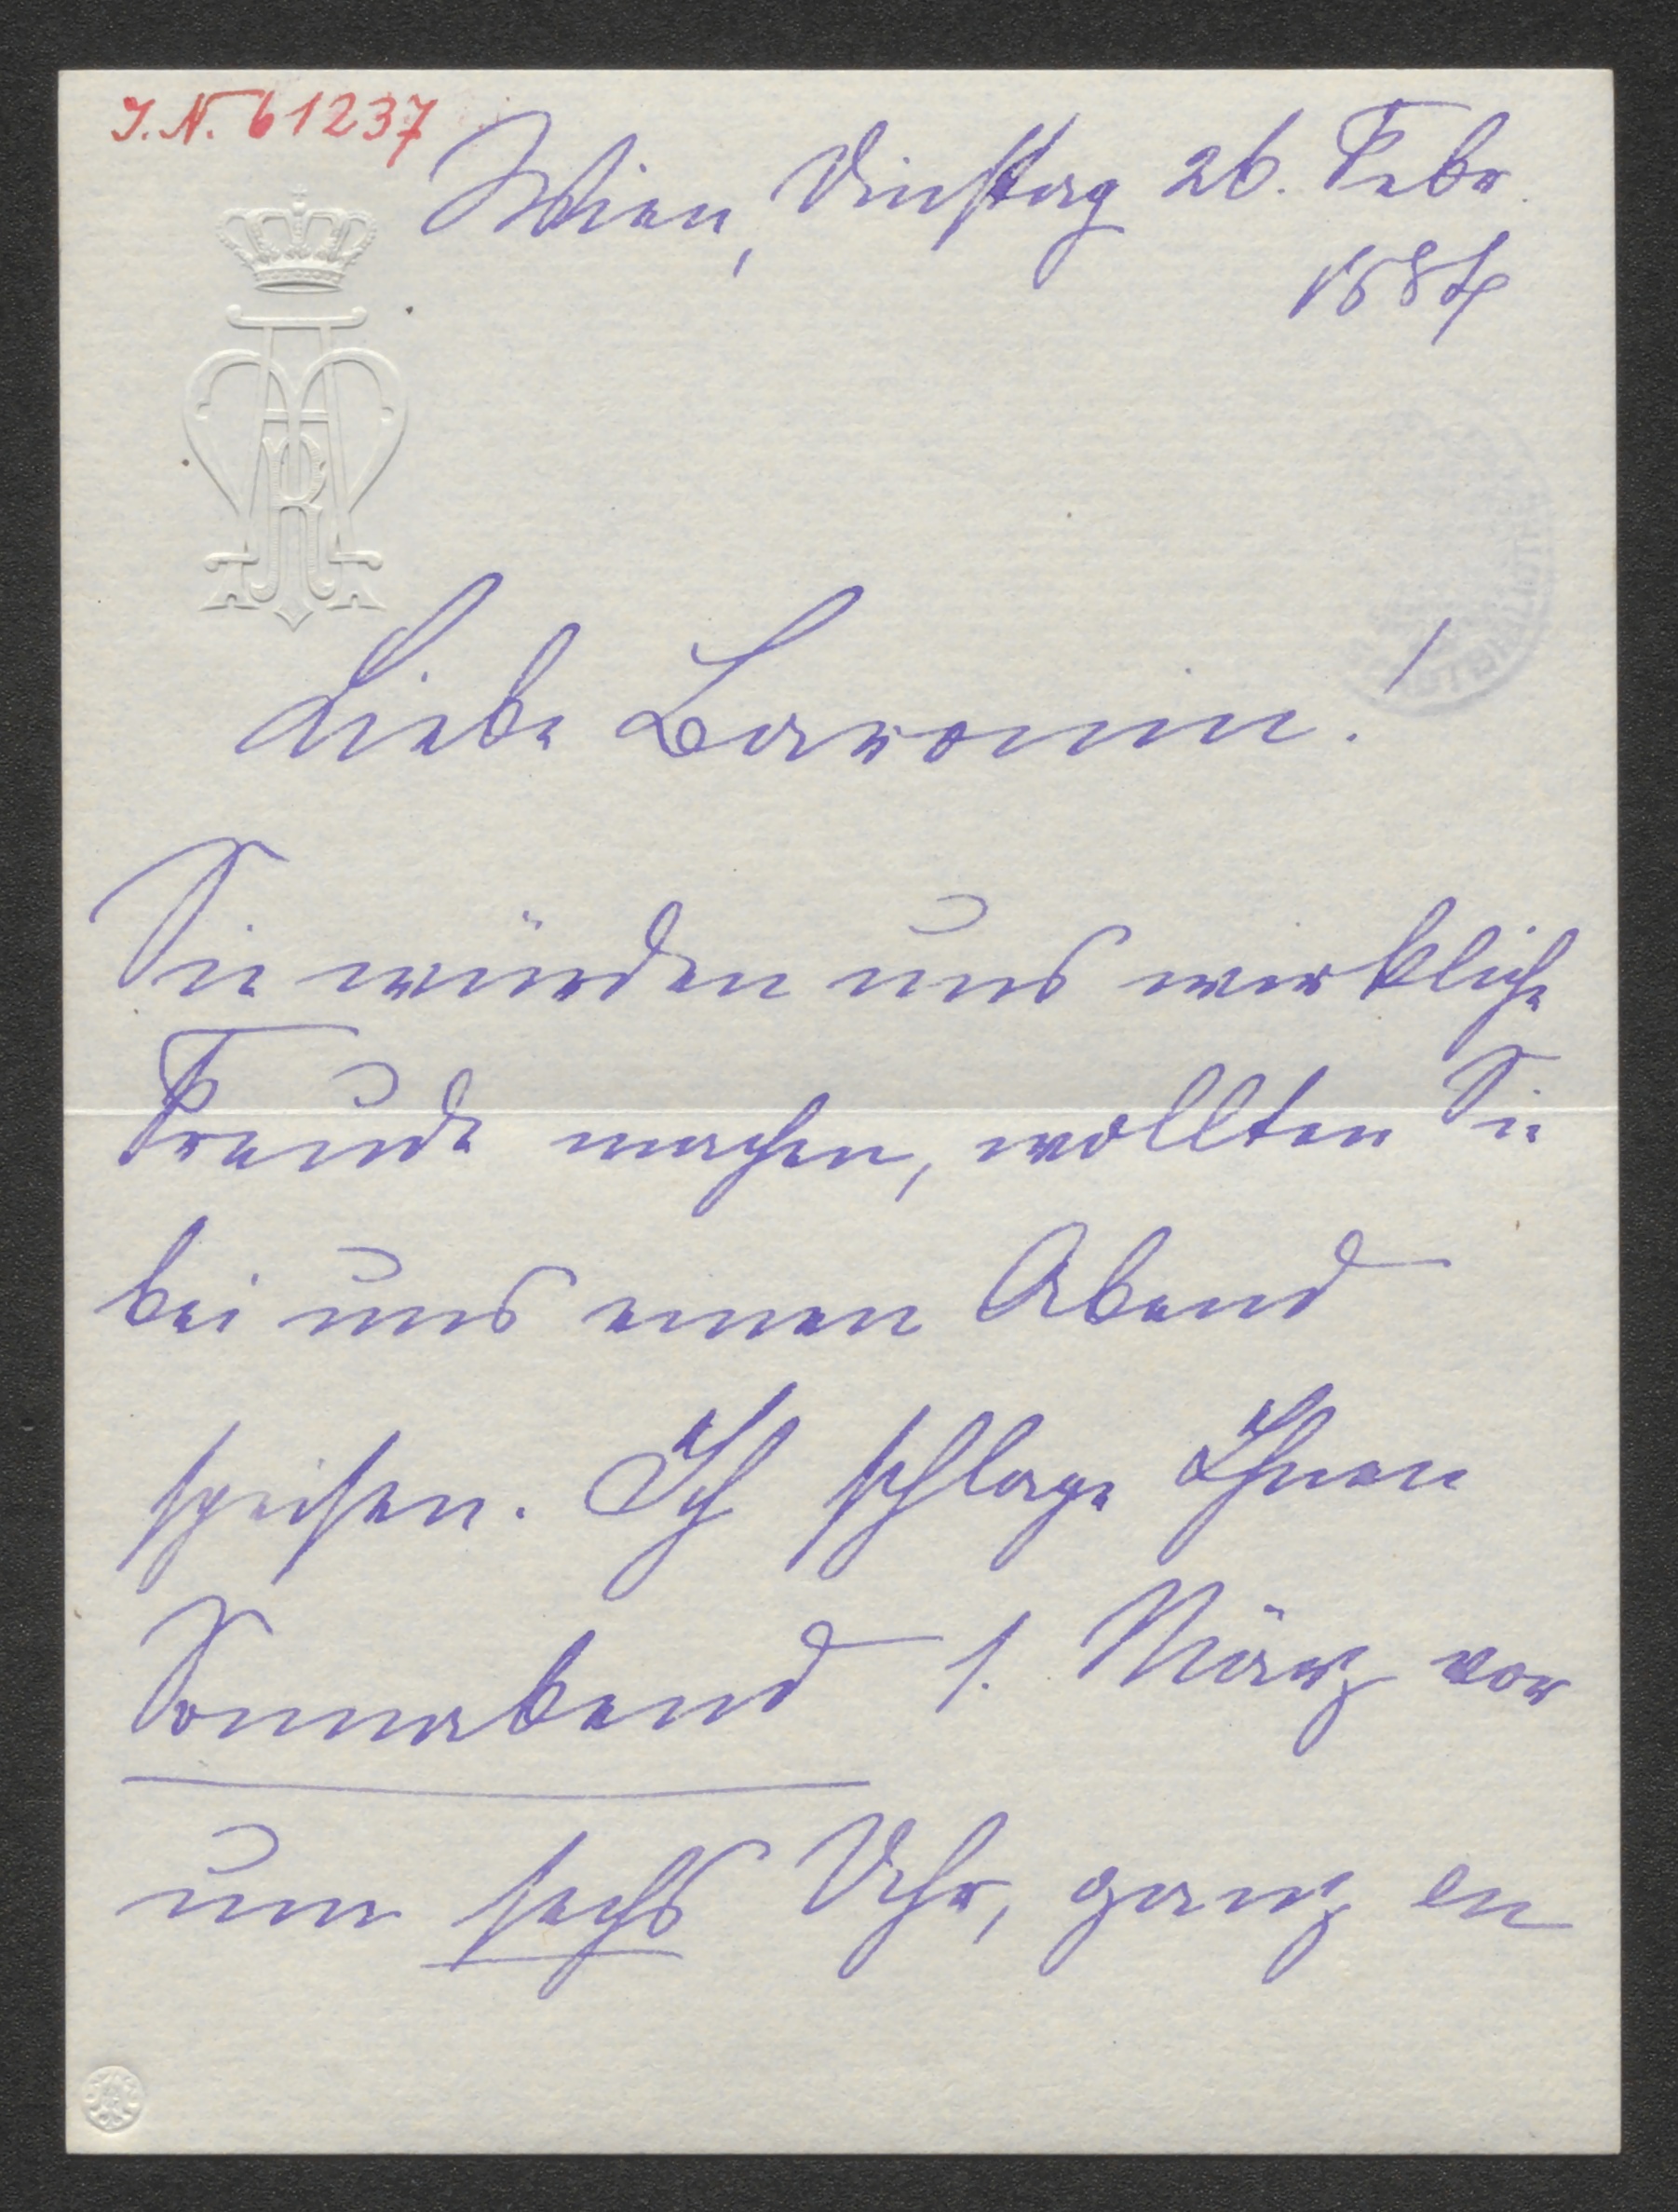 I. N. 61237
Wien, Dinstag 26. Febr.
1884
Liebe Baronin!
Sie würden uns wirkliche
Freude machen, wollten Sie
bei uns einen Abend
speisen. Ich schlage Ihnen
Sonnabend 1. März vor
um sechs Uhr, ganz en